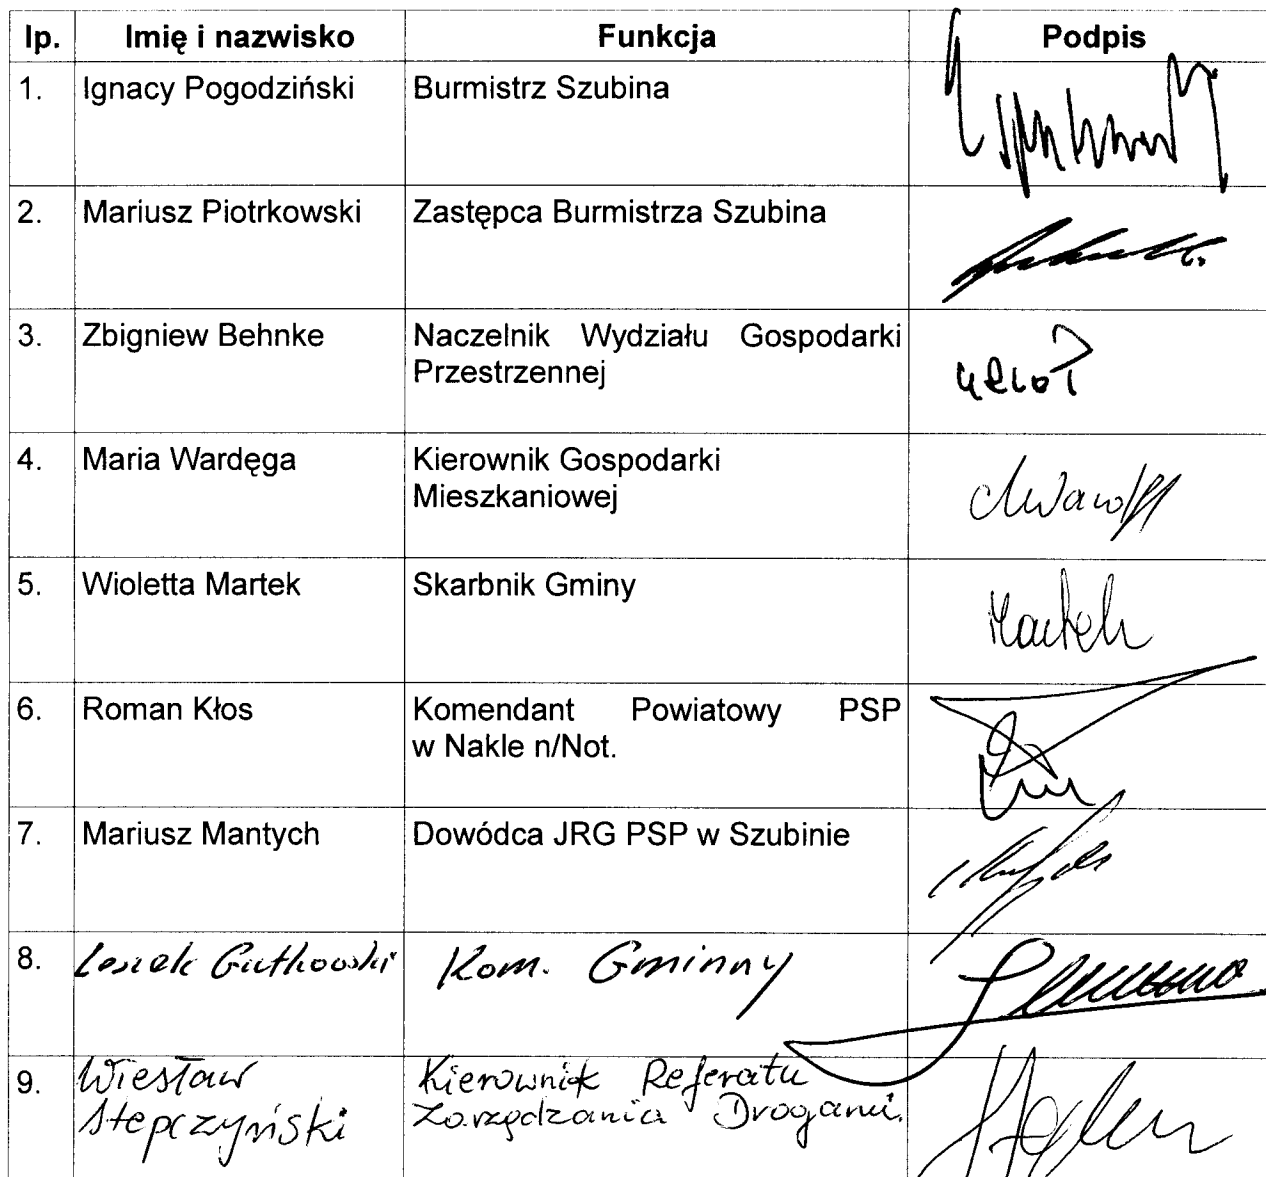 lp. Imię i nazwisko Funkcja Podpis
1. Ignacy Pogodziński Burmistrz Szubina
2. Mariusz Piotrkowski Zastępca Burmistrza Szubina
3. Zbigniew Behnke Naczelnik Wydziału Gospodarki
Przestrzennej
4. Maria Wardęga Kierownik Gospodarki
Mieszkaniowej
5. Wioletta Martek Skarbnik Gminy Martek
6. Roman Kłos Komendant Powiatowy PSP
w Nakle n/Not.
7. Mariusz Mantych Dowódca JRG PSP w Szubinie
8. Leszek Gutkowski Kom. Gminny
9. Wiesław Kierownik Referatu
Stepczyński Zarządzania Drogami.